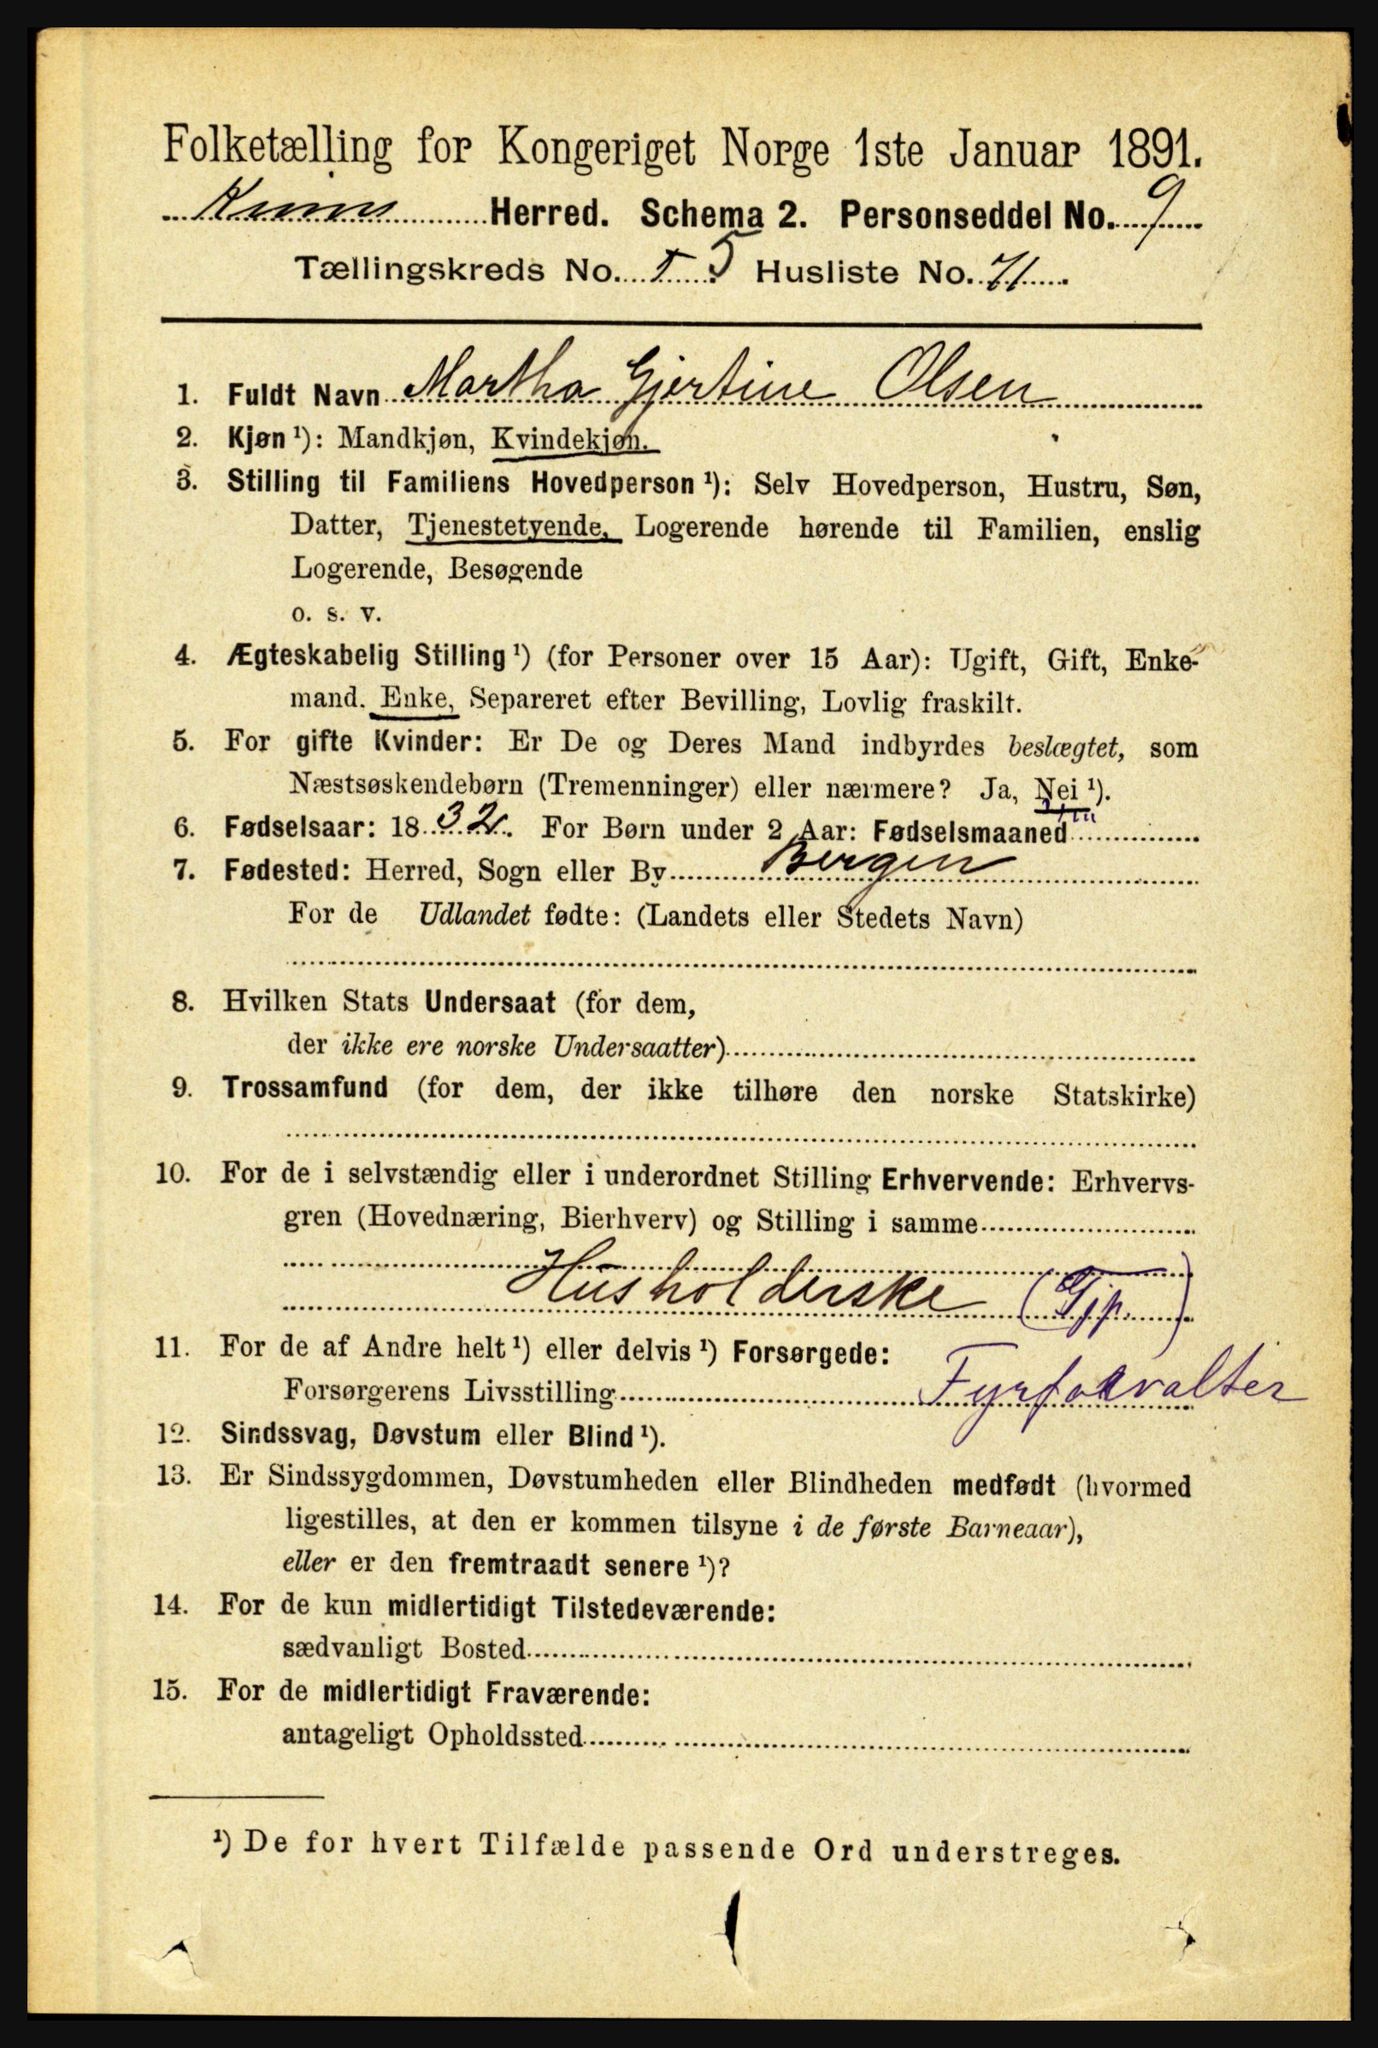 Folketælling for Kongeriget Norge 1ste Januar 1891.
Kinn Herred. Schema 2. Personseddel No. 9
Tællingskreds No. 5 Husliste No. 71
1. Fuldt Navn Martha Gjertine Olsen
2. Kjøn ¹): Mandkjøn, Kvindekjøn.
3. Stilling til Familiens Hovedperson ¹): Selv Hovedperson, Hustru, Søn,
Datter, Tjenestetyende, Logerende hørende til Familien, enslig
Logerende, Besøgende
o. s. v.
4. Ægteskabelig Stilling ¹) (for Personer over 15 Aar): Ugift, Gift, Enke-
mand. Enke, Separeret efter Bevilling, Lovlig fraskilt.
5. For gifte Kvinder: Er De og Deres Mand indbyrdes beslægtet, som
Næstsøskendebørn (Tremenninger) eller nærmere? Ja, Nei ¹).
6. Fødselsaar: 1832. For Børn under 2 Aar: Fødselsmaaned
7. Fødested: Herred, Sogn eller By Bergen
For de Udlandet fødte: (Landets eller Stedets Navn)
8. Hvilken Stats Undersaat (for dem,
der ikke ere norske Undersaatter)
9. Trossamfund (for dem, der ikke tilhøre den norske Statskirke)
10. For de i selvstændig eller i underordnet Stilling Erhvervende: Erhvervs-
gren (Hovednæring, Bierhverv) og Stilling i samme
Husholderske (Tjp.)
11. For de af Andre helt ¹) eller delvis ¹) Forsørgede:
Forsørgerens Livsstilling Fyrforvalter
12. Sindssvag, Døvstum eller Blind ¹).
13. Er Sindssygdommen, Døvstumheden eller Blindheden medfødt (hvormed
ligestilles, at den er kommen tilsyne i de første Barneaar),
eller er den fremtraadt senere ¹)?
14. For de kun midlertidigt Tilstedeværende:
sædvanligt Bosted
15. For de midlertidigt Fraværende:
antageligt Opholdssted
¹) De for hvert Tilfælde passende Ord understreges.